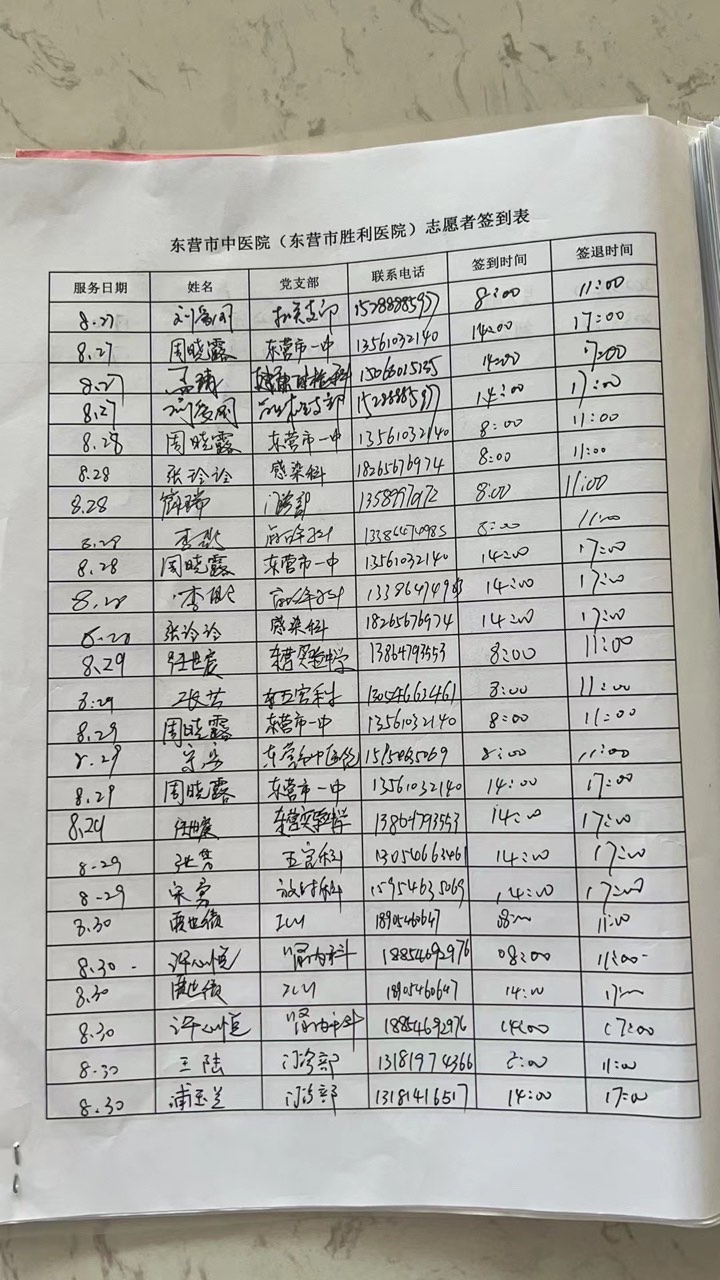 东营市中医院（东营市胜利医院）志愿者签到表
服务日期 姓名 党支部 联系电话 签到时间 签退时间
8.27 8:00 11:00
8.27 周晓露 东营市一中 13561032140 14:00 17:00
8.27 14:00 17:00
8.27 14:00 17:00
8.28 周晓露 东营市一中 13561032140 8:00 11:00
8.28 张玲玲 感染科 18265676974 8:00 11:00
8.28 门诊部 8:00 11:00
8.28 8:00 11:00
8.28 周晓露 东营市一中 13561032140 14:00 17:00
8.28 14:00 17:00
8.28 张玲玲 感染科 18265676974 14:00 17:00
8.29 任世宸 东营实验中学 13864793553 8:00 11:00
8.29 13054663461 8:00 11:00
8.29 周晓露 东营市一中 13561032140 8:00 11:00
8.29 8:00 11:00
8.29 周晓露 东营市一中 13561032140 14:00 17:00
8.29 任世宸 东营实验中学 13864793553 14:00 17:00
8.29 五官科 13054663461 14:00 17:00
8.29 宋勇 放射科 15954635069 14:00 17:00
8.30 ICU 18905460647 08:00 11:00
8.30 许心恒 肾内科 18854692976 08:00 11:00
8.30 ICU 18905460647 14:00 17:00
8.30 许心恒 18854692976 14:00 17:00
8.30 王陆 门诊部 13181974366 8:00 11:00
8.30 浦玉兰 门诊部 13181416517 14:00 17:00